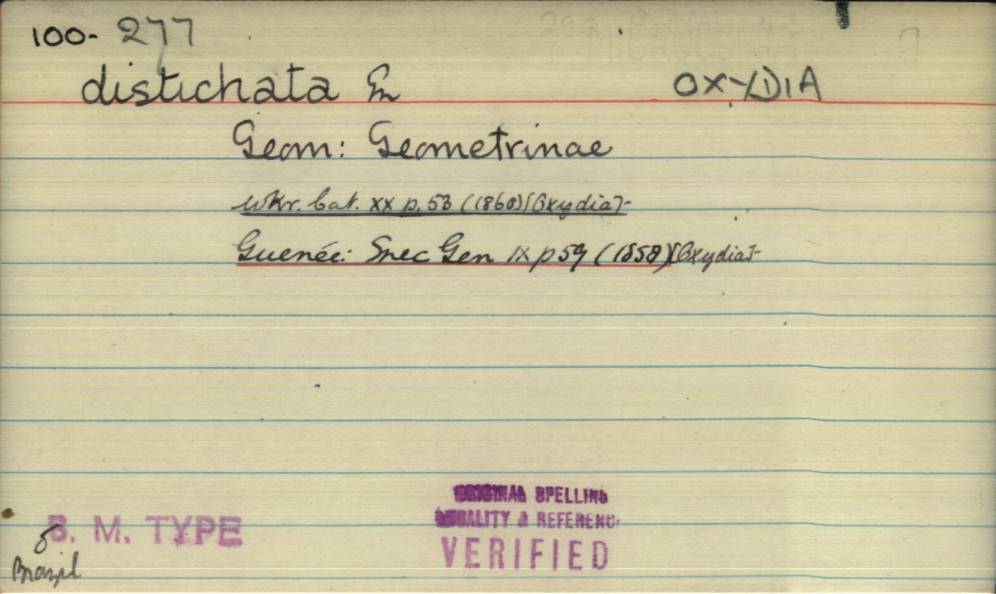 100- 277
distichata Gn OXYDIA
Geom: Geometrinae
Wkr. Cat. xx p. 53 (1860) [Oxydia]-
Guenée: Spec Gen ix p 59 (1858) [Oxydia]-
ORIGINAL SPELLING
LOCALITY & REFERENC
B. M. TYPE
VERIFIED
Brazil